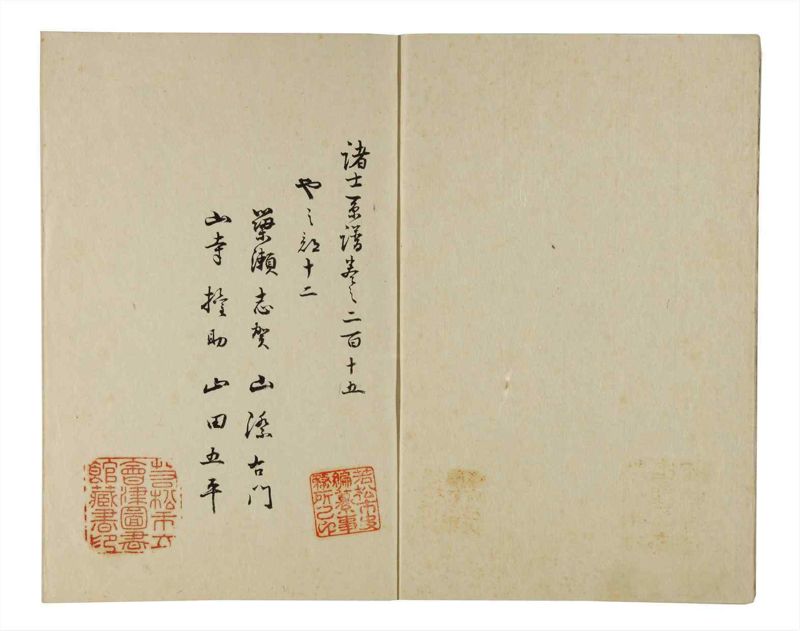 諸士系譜巻之二百十五
や之部十二
簗瀬志賀 山際右門
山寺権助 山田五平
若松市史
編纂事
務所之印
若松市立
會津圖書
館藏書印